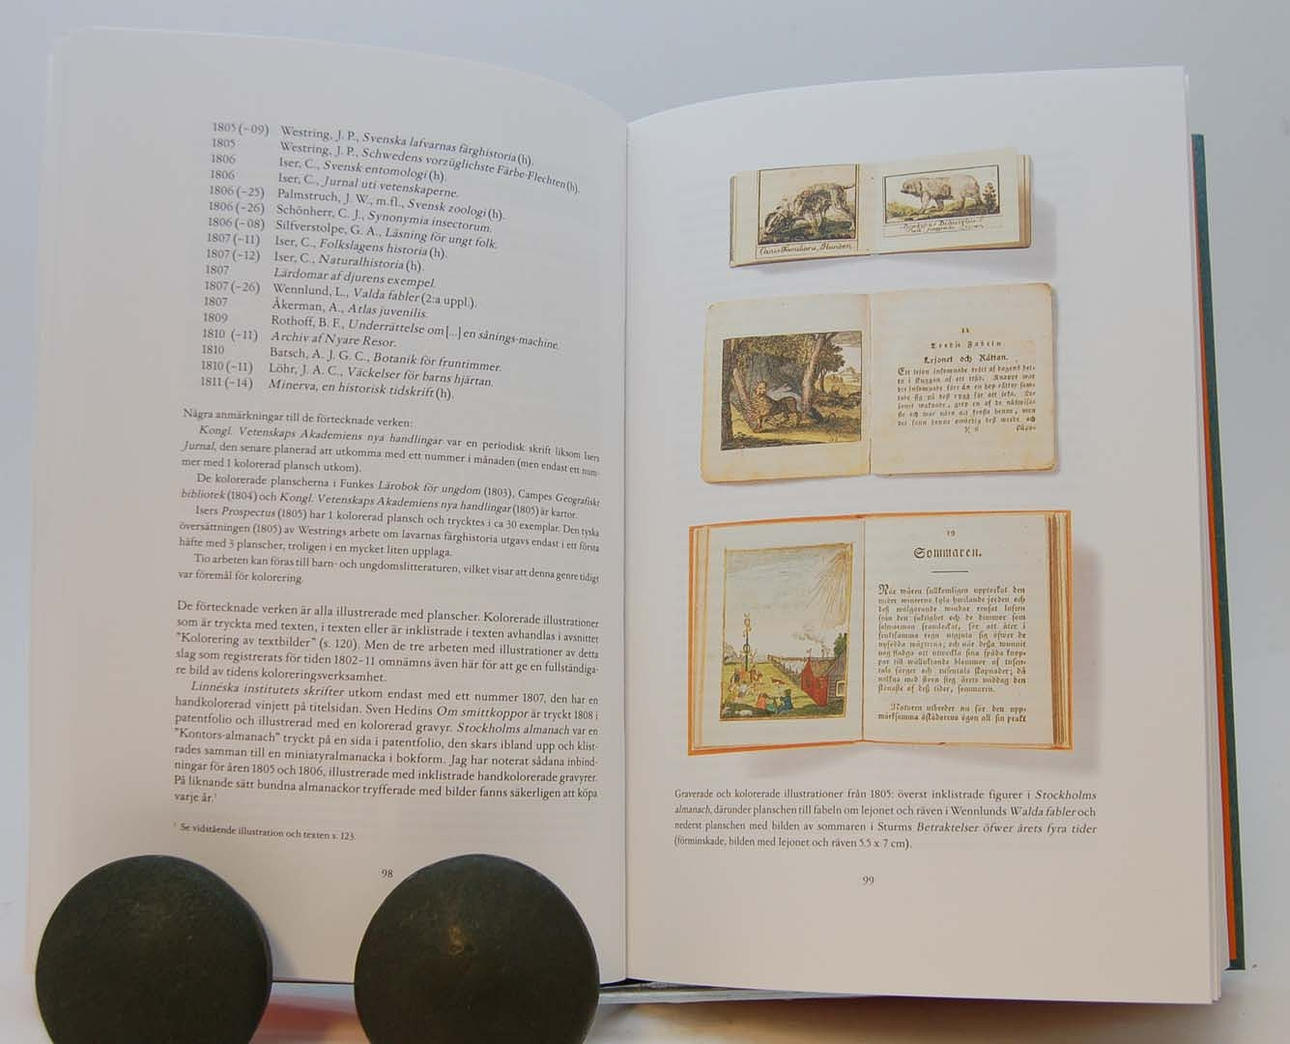 1805 (–09) Westring, J. P., Svenska lafvarnas färghistoria (h).
1805 Westring, J. P., Schwedens vorzüglichste Färbe-Flechten (h).
1806 Iser, C., Svensk entomologi (h).
1806 Iser, C., Jurnal uti vetenskaperne.
1806 (–25) Palmstruch, J. W., m.fl., Svensk zoologi (h).
1806 (–26) Schönherr, C. J., Synonymia insectorum.
1806 (–08) Silfverstolpe, G. A., Läsning för ungt folk.
1807 (–11) Iser, C., Folkslagens historia (h).
1807 (–12) Iser, C., Naturalhistoria (h).
1807 Lärdomar af djurens exempel.
1807 (–26) Wennlund, L., Valda fabler (2:a uppl.).
1807 Åkerman, A., Atlas juvenilis.
1809 Rothoff, B. F., Underrättelse om [...] en sånings-machine.
1810 (–11) Archiv af Nyare Resor.
1810 Batsch, A. J. G. C., Botanik för fruntimmer.
1810 (–11) Löhr, J. A. C., Väckelser för barns hjärtan.
1811 (–14) Minerva, en historisk tidskrift (h).
Några anmärkningar till de förtecknade verken:
Kongl. Vetenskaps Akademiens nya handlingar var en periodisk skrift liksom Isers
Jurnal, den senare planerad att utkomma med ett nummer i månaden (men endast ett num-
mer med 1 kolorerad plansch utkom).
De kolorerade planscherna i Funkes Lärobok för ungdom (1803), Campes Geografiskt
bibliotek (1804) och Kongl. Vetenskaps Akademiens nya handlingar (1805) är kartor.
Isers Prospectus (1805) har 1 kolorerad plansch och trycktes i ca 30 exemplar. Den tyska
översättningen (1805) av Westrings arbete om lavarnas färghistoria utgavs endast i ett första
häfte med 3 planscher, troligen i en mycket liten upplaga.
Tio arbeten kan föras till barn- och ungdomslitteraturen, vilket visar att denna genre tidigt
var föremål för kolorering.
De förtecknade verken är alla illustrerade med planscher. Kolorerade illustrationer
som är tryckta med texten, i texten eller är inklistrade i texten avhandlas i avsnittet
"Kolorering av textbilder" (s. 120). Men de tre arbeten med illustrationer av detta
slag som registrerats för tiden 1802–11 omnämns även här för att ge en fullständiga-
re bild av tidens koloreringsverksamhet.
Linnéska institutets skrifter utkom endast med ett nummer 1807, den har en
handkolorerad vinjett på titelsidan. Sven Hedins Om smittkoppor är tryckt 1808 i
patentfolio och illustrerad med en kolorerad gravyr. Stockholms almanach var en
"Kontors-almanach" tryckt på en sida i patentfolio, den skars ibland upp och klist-
rades samman till en miniatyralmanacka i bokform. Jag har noterat sådana inbind-
ningar för åren 1805 och 1806, illustrerade med inklistrade handkolorerade gravyrer.
På liknande sätt bundna almanackor tryfferade med bilder fanns säkerligen att köpa
varje år.¹
¹ Se vidstående illustration och texten s. 123.
98
Canis Familiaris, Hunden
Lejonet och Råttan.
19
Sommaren.
Graverade och kolorerade illustrationer från 1805: överst inklistrade figurer i Stockholms
almanach, därunder planschen till fabeln om lejonet och räven i Wennlunds Walda fabler och
nederst planschen med bilden av sommaren i Sturms Betraktelser öfwer årets fyra tider
(förminskade, bilden med lejonet och räven 5.5 x 7 cm).
99